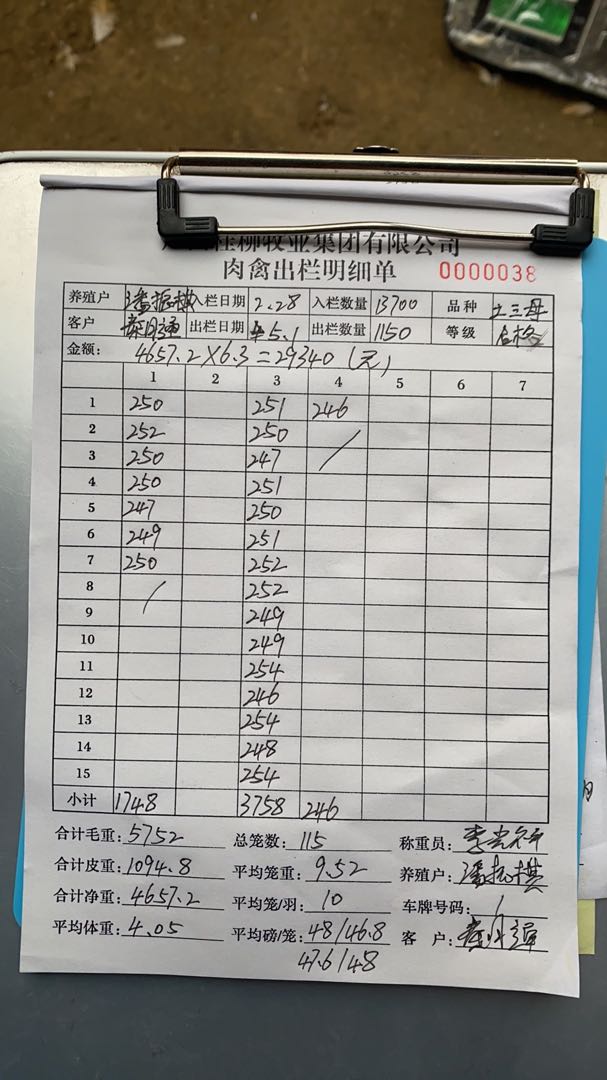 桂柳牧业集团有限公司
肉禽出栏明细单 0000038
养殖户 潘振棋 入栏日期 2.28 入栏数量 13700 品种 土三母
客户 出栏日期 5.1 出栏数量 1150 等级 合格
金额: 4657.2×6.3=29340(元)
1 2 3 4 5 6 7
1 250 251 246
2 252 250
3 250 247 /
4 250 251
5 247 250
6 249 251
7 250 252
8 / 252
9 249
10 249
11 254
12 246
13 254
14 248
15 254
小计 1748 3758 246
合计毛重: 5752 总笼数: 115 称重员:
合计皮重: 1094.8 平均笼重: 9.52 养殖户: 潘振棋
合计净重: 4657.2 平均笼/羽: 10 车牌号码: /
平均体重: 4.05 平均磅/笼: 48/46.8 客户:
47.6/48